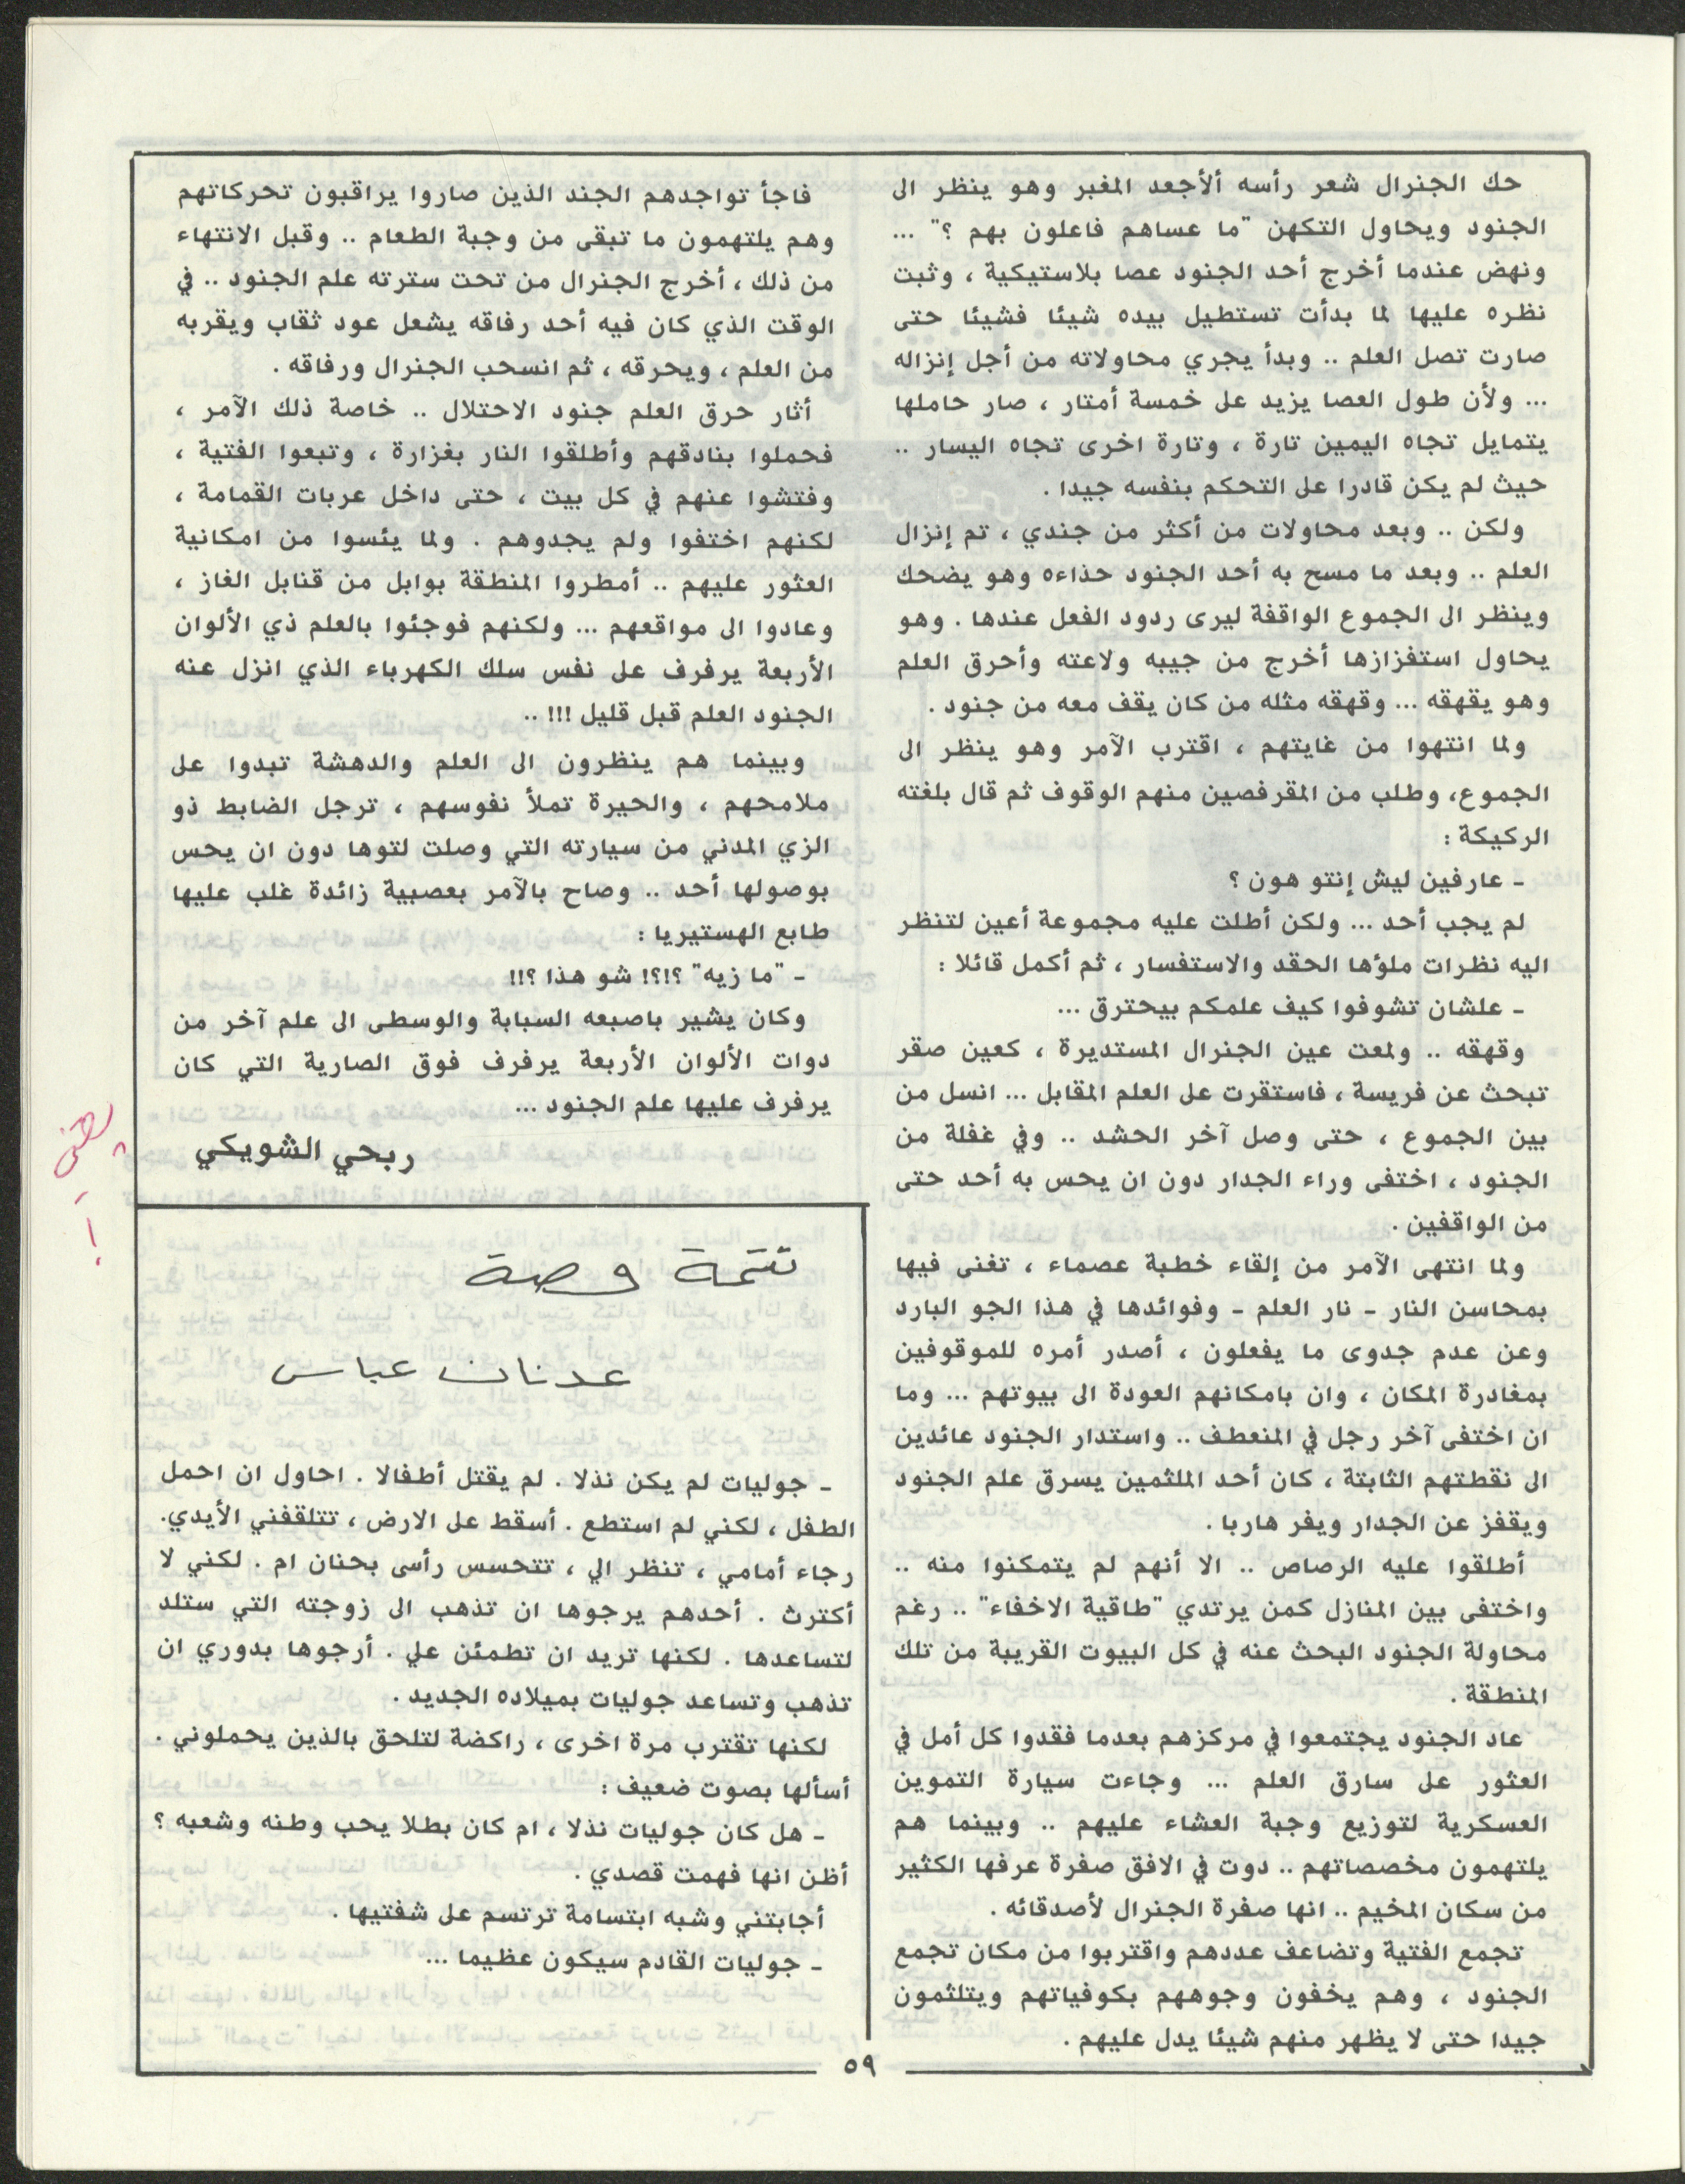 حك الجنرال شعر رأسه ألأجعد المغبر وهو ينظر الى
الجنود ويحاول التكهن "ما عساهم فاعلون بهم ؟" ...
ونهض عندما أخرج أحد الجنود عصا بلاستيكية ، وثبت
نظره عليها لما بدأت تستطيل بيده شيئا فشيئا حتى
صارت تصل العلم .. وبدأ يجري محاولاته من أجل إنزاله
... ولأن طول العصا يزيد على خمسة أمتار ، صار حاملها
يتمايل تجاه اليمين تارة ، وتارة اخرى تجاه اليسار ..
حيث لم يكن قادرا على التحكم بنفسه جيدا .
ولكن .. وبعد محاولات من أكثر من جندي ، تم إنزال
العلم .. وبعد ما مسح به أحد الجنود حذاءه وهو يضحك
وينظر الى الجموع الواقفة ليرى ردود الفعل عندها . وهو
يحاول استفزازها أخرج من جيبه ولاعته وأحرق العلم
وهو يقهقه ... وقهقه مثله من كان يقف معه من جنود .
ولما انتهوا من غايتهم ، اقترب الآمر وهو ينظر الى
الجموع، وطلب من المقرفصين منهم الوقوف ثم قال بلغته
الركيكة :
- عارفين ليش إنتو هون ؟
لم يجب أحد ... ولكن أطلت عليه مجموعة أعين لتنظر
اليه نظرات ملؤها الحقد والاستفسار ، ثم أكمل قائلا :
- علشان تشوفوا كيف علمكم بيحترق ...
وقهقه .. ولمعت عين الجنرال المستديرة ، كعين صقر
تبحث عن فريسة ، فاستقرت على العلم المقابل ... انسل من
بين الجموع ، حتى وصل آخر الحشد .. وفي غفلة من
الجنود ، اختفى وراء الجدار دون ان يحس به أحد حتى
من الواقفين .
ولما انتهى الآمر من إلقاء خطبة عصماء ، تغنى فيها
بمحاسن النار - نار العلم - وفوائدها في هذا الجو البارد
وعن عدم جدوى ما يفعلون ، أصدر أمره للموقوفين
بمغادرة المكان ، وان بامكانهم العودة الى بيوتهم ... وما
ان اختفى آخر رجل في المنعطف .. واستدار الجنود عائدين
الى نقطتهم الثابتة ، كان أحد الملثمين يسرق علم الجنود
ويقفز عن الجدار ويفر هاربا .
أطلقوا عليه الرصاص .. الا أنهم لم يتمكنوا منه ..
واختفى بين المنازل كمن يرتدي "طاقية الاخفاء" .. رغم
محاولة الجنود البحث عنه في كل البيوت القريبة من تلك
المنطقة .
عاد الجنود يجتمعوا في مركزهم بعدما فقدوا كل أمل في
العثور على سارق العلم ... وجاءت سيارة التموين
العسكرية لتوزيع وجبة العشاء عليهم .. وبينما هم
يلتهمون مخصصاتهم .. دوت في الافق صفرة عرفها الكثير
من سكان المخيم .. انها صفرة الجنرال لأصدقائه .
تجمع الفتية وتضاعف عددهم واقتربوا من مكان تجمع
الجنود ، وهم يخفون وجوههم بكوفياتهم ويتلثمون
جيدا حتى لا يظهر منهم شيئا يدل عليهم .
فاجأ تواجدهم الجند الذين صاروا يراقبون تحركاتهم
وهم يلتهمون ما تبقى من وجبة الطعام .. وقبل الانتهاء
من ذلك ، أخرج الجنرال من تحت سترته علم الجنود .. في
الوقت الذي كان فيه أحد رفاقه يشعل عود ثقاب ويقربه
من العلم ، ويحرقه ، ثم انسحب الجنرال ورفاقه .
أثار حرق العلم جنود الاحتلال .. خاصة ذلك الآمر ،
فحملوا بنادقهم وأطلقوا النار بغزارة ، وتبعوا الفتية ،
وفتشوا عنهم في كل بيت ، حتى داخل عربات القمامة ،
لكنهم اختفوا ولم يجدوهم . ولما يئسوا من امكانية
العثور عليهم .. أمطروا المنطقة بوابل من قنابل الغاز ،
وعادوا الى مواقعهم ... ولكنهم فوجئوا بالعلم ذي الألوان
الأربعة يرفرف على نفس سلك الكهرباء الذي انزل عنه
الجنود العلم قبل قليل !!! ..
وبينما هم ينظرون الى العلم والدهشة تبدوا على
ملامحهم ، والحيرة تملأ نفوسهم ، ترجل الضابط ذو
الزي المدني من سيارته التي وصلت لتوها دون ان يحس
بوصولها أحد .. وصاح بالآمر بعصبية زائدة غلب عليها
طابع الهستيريا :
- "ما زيه" ؟!؟! شو هذا ؟!!
وكان يشير باصبعه السبابة والوسطى الى علم آخر من
دوات الألوان الأربعة يرفرف فوق الصارية التي كان
يرفرف عليها علم الجنود ...
ربحي الشويكي
تتمة قصة
عدنان عباس
- جوليات لم يكن نذلا . لم يقتل أطفالا . احاول ان احمل
الطفل ، لكني لم استطع . أسقط على الارض ، تتلقفني الأيدي.
رجاء أمامي ، تنظر الي ، تتحسس رأسى بحنان ام . لكني لا
أكترث . أحدهم يرجوها ان تذهب الى زوجته التي ستلد
لتساعدها . لكنها تريد ان تطمئن علي . أرجوها بدوري ان
تذهب وتساعد جوليات بميلاده الجديد .
لكنها تقترب مرة اخرى ، راكضة لتلحق بالذين يحملوني .
أسألها بصوت ضعيف :
- هل كان جوليات نذلا ، ام كان بطلا يحب وطنه وشعبه ؟
أظن انها فهمت قصدي .
أجابتني وشبه ابتسامة ترتسم على شفتيها .
- جوليات القادم سيكون عظيما ...
٥٩